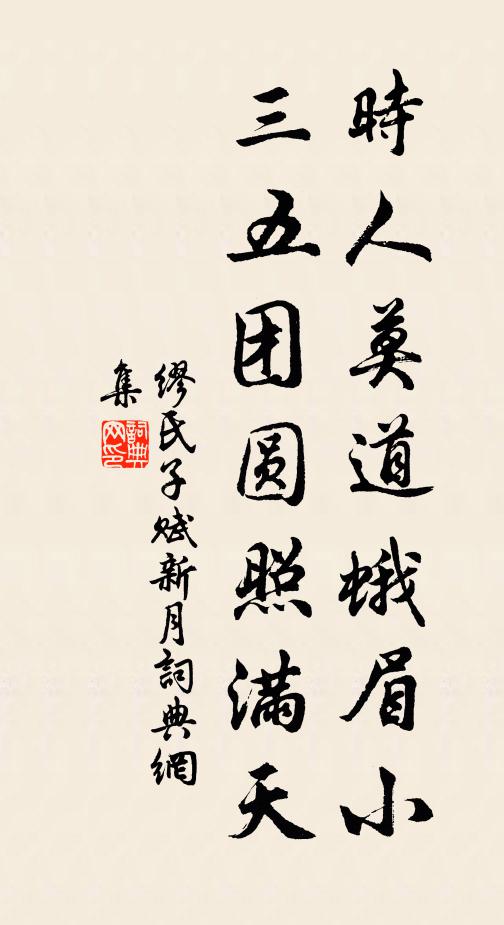 時人莫道蛾眉小
三五团圆照满天
缪氏子赋新月詞典網
集
詞典
网印